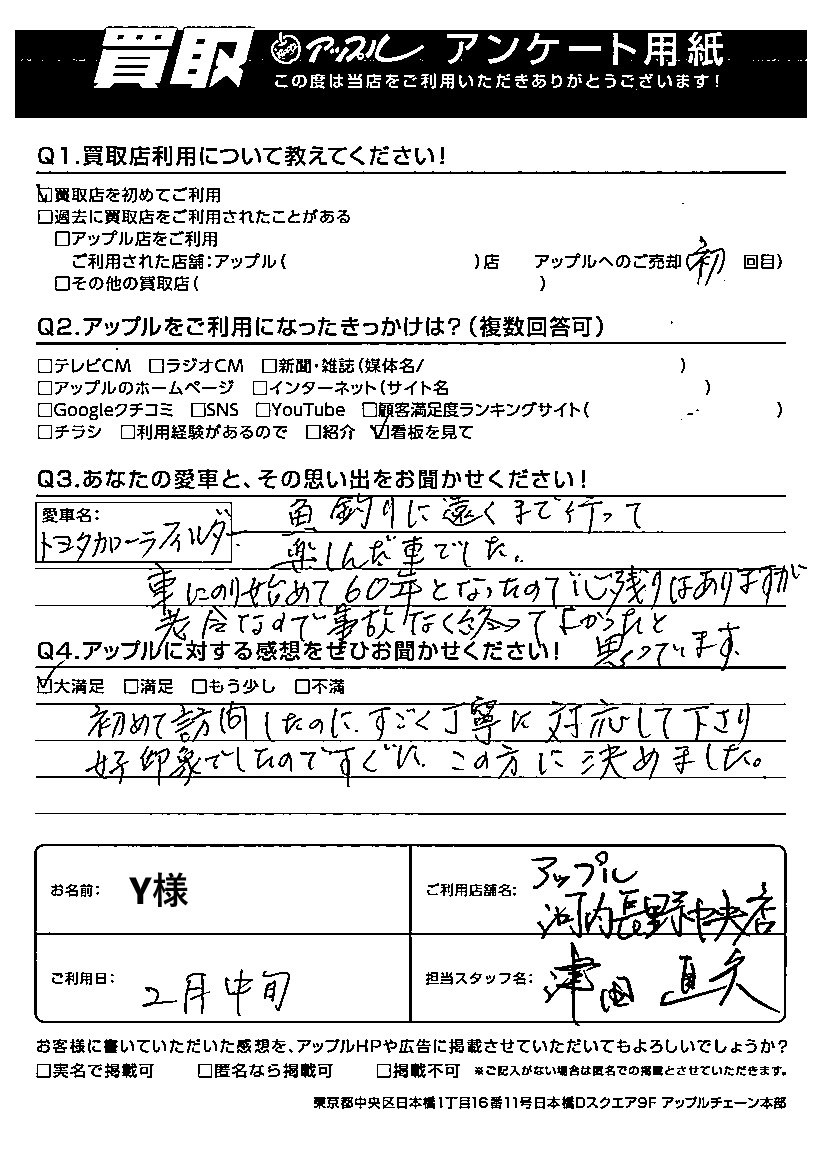 買取 アップル アンケート用紙
この度は当店をご利用いただきありがとうございます!
Q1.買取店利用について教えてください!
☑買取店を初めてご利用
□過去に買取店をご利用されたことがある
□アップル店をご利用
ご利用された店舗:アップル( )店 アップルへのご売却(初 回目)
□その他の買取店( )
Q2.アップルをご利用になったきっかけは?(複数回答可)
□テレビCM □ラジオCM □新聞・雑誌(媒体名/ )
□アップルのホームページ □インターネット(サイト名 )
□Googleクチコミ □SNS □YouTube □顧客満足度ランキングサイト( )
□チラシ □利用経験があるので □紹介 ☑看板を見て
Q3.あなたの愛車と、その思い出をお聞かせください!
愛車名:
トヨタカローラフィルダー
魚釣りに遠くまで行って
楽しんだ車でした。
車にのり始めて60年となったので心残りはありますが
老令なので事故なく終ってよかったと
思っています。
Q4.アップルに対する感想をぜひお聞かせください!
☑大満足 □満足 □もう少し □不満
初めて訪問したのに、すごく丁寧に対応して下さり
好印象でしたのですぐに、この方に決めました。
お名前: Y様
ご利用店舗名: アップル
河内長野中央店
ご利用日: 2月中旬
担当スタッフ名: 津田 直久
お客様に書いていただいた感想を、アップルHPや広告に掲載させていただいてもよろしいでしょうか?
□実名で掲載可 □匿名なら掲載可 □掲載不可 ※ご記入がない場合は匿名での掲載とさせていただきます。
東京都中央区日本橋1丁目16番11号日本橋Dスクエア9F アップルチェーン本部